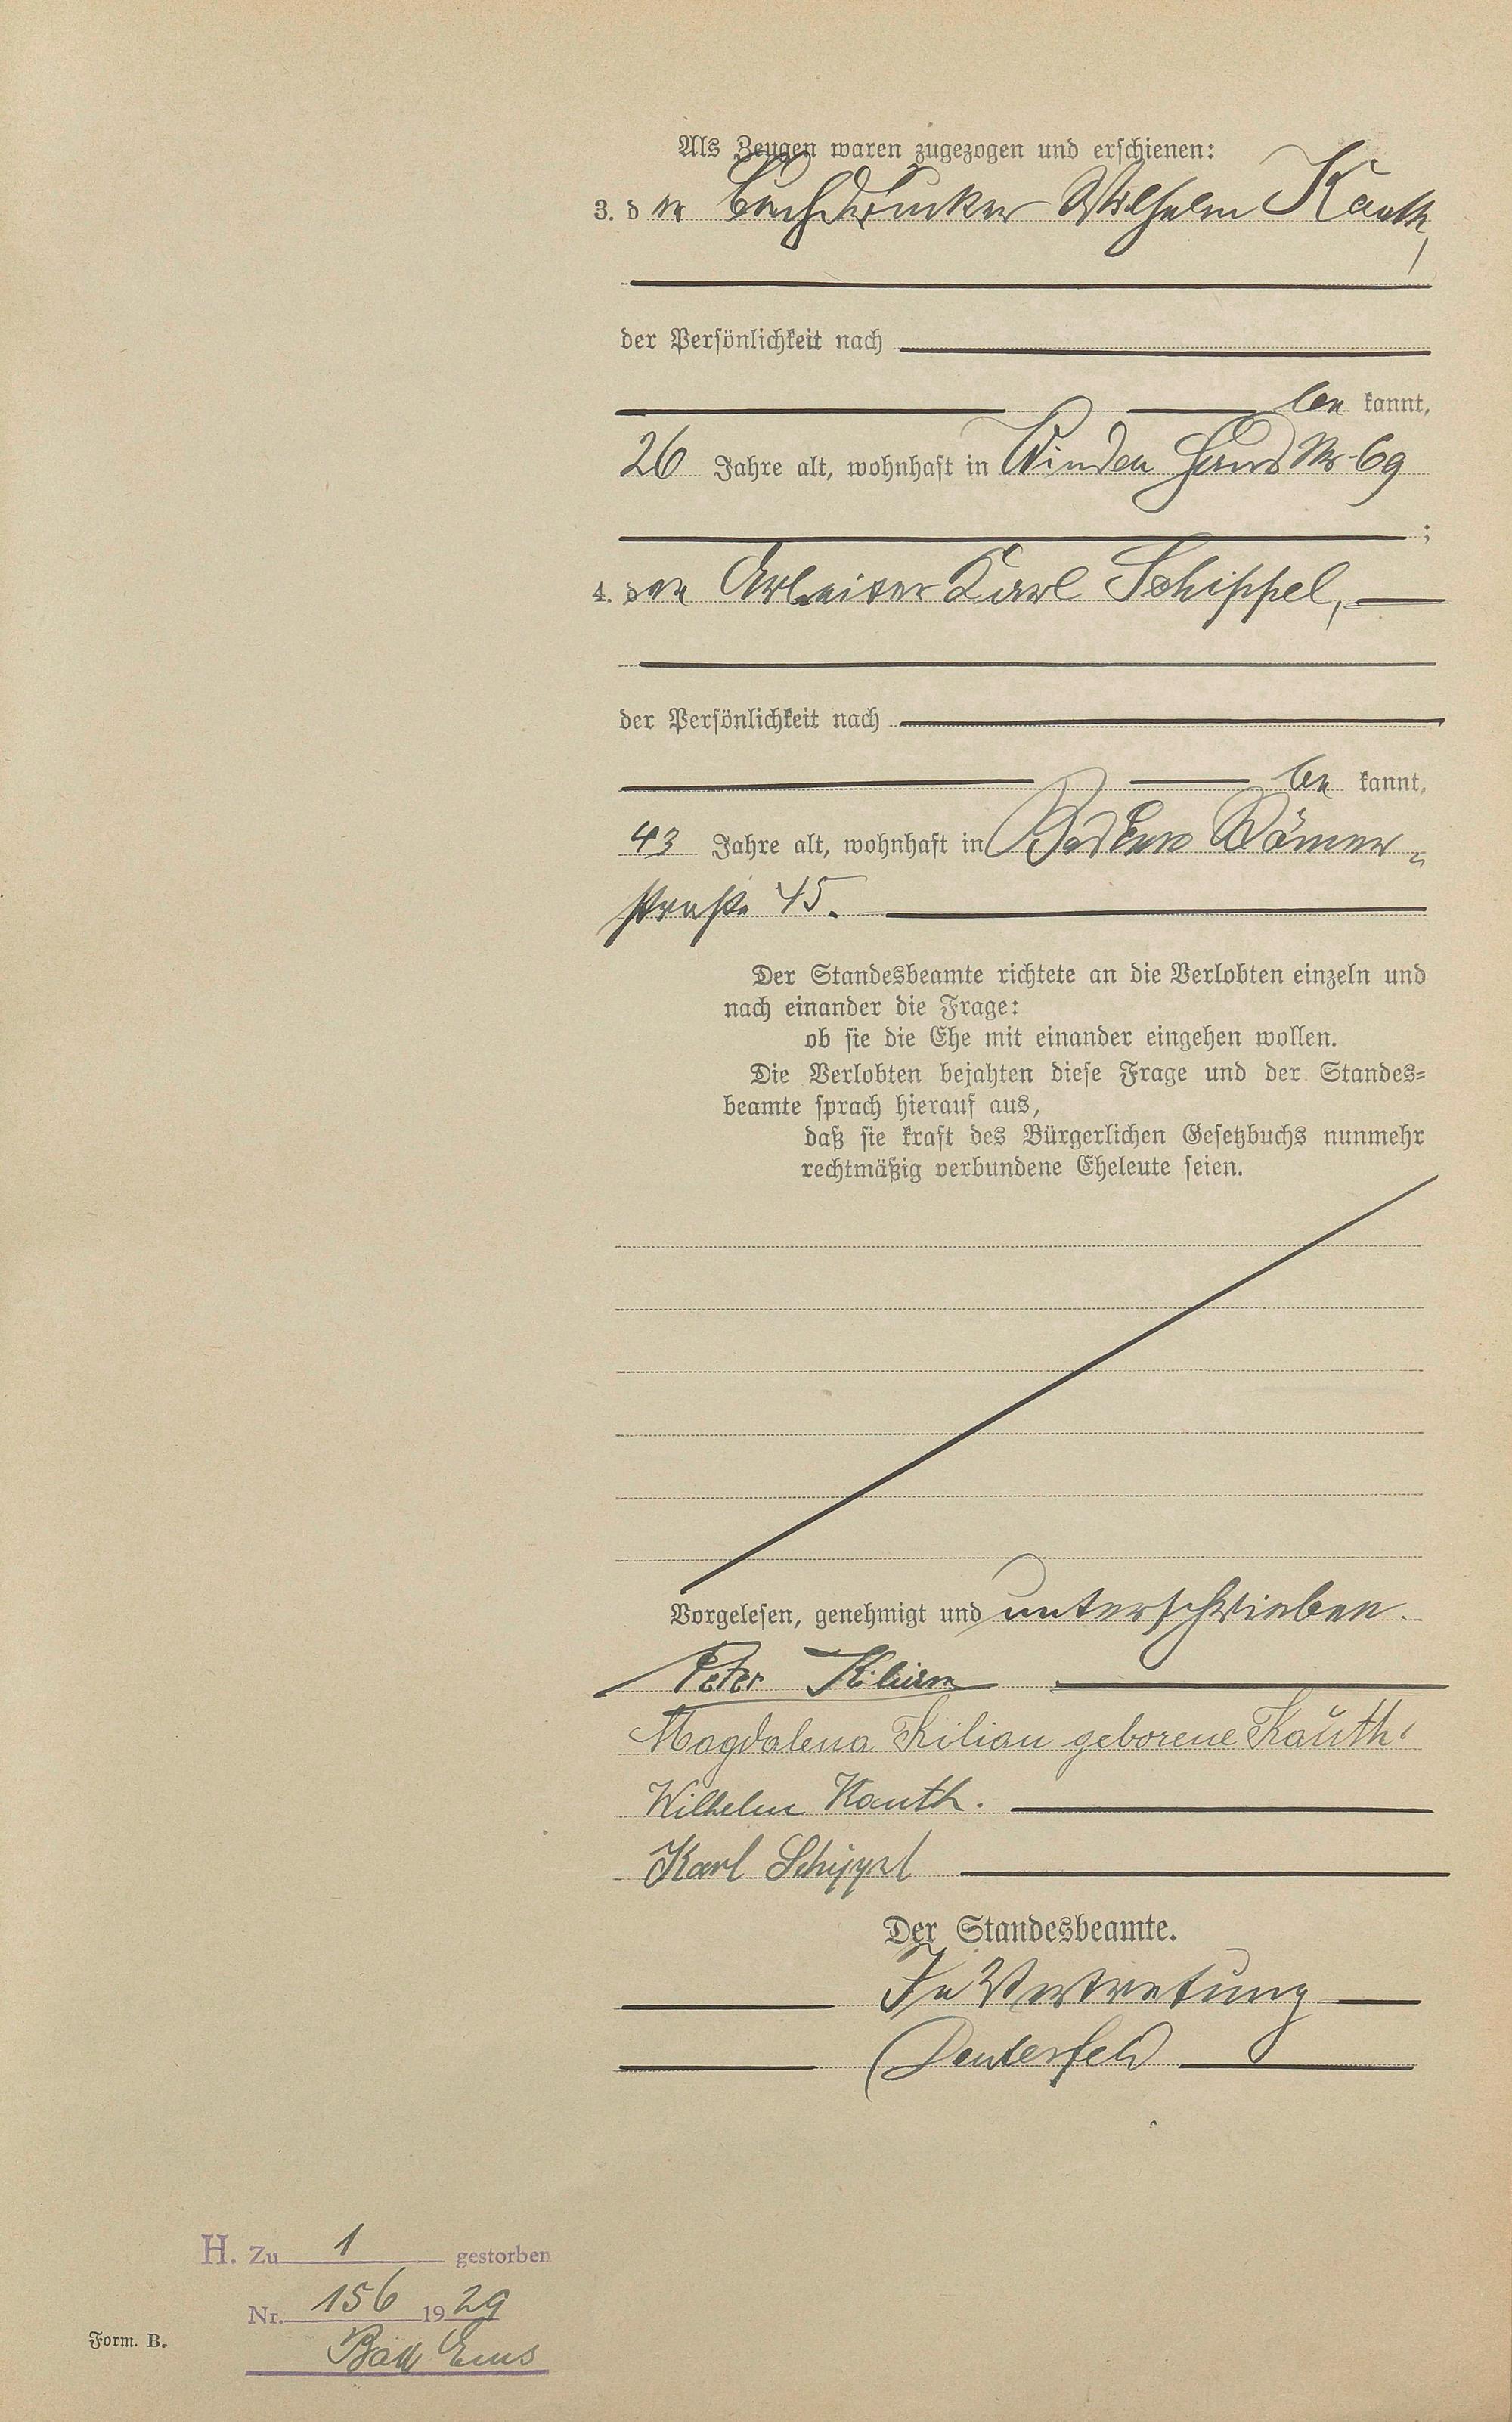 Als Zeugen waren zugezogen und erschienen:
3. der Buchdrucker Wilhelm Kauth,
der Persönlichkeit nach
be kannt,
26 Jahre alt, wohnhaft in Winden Haus Nr. 69
;
4. der Arbeiter Karl Schippel,
der Persönlichkeit nach
be kannt,
43 Jahre alt, wohnhaft in Bad Ems Römer=
straße 45.
Der Standesbeamte richtete an die Verlobten einzeln und
nach einander die Frage:
ob sie die Ehe mit einander eingehen wollen.
Die Verlobten bejahten diese Frage und der Standes=
beamte sprach hierauf aus,
daß sie kraft des Bürgerlichen Gesetzbuchs nunmehr
rechtmäßig verbundene Eheleute seien.
Vorgelesen, genehmigt und unterschrieben.
Peter Kilian
Magdalena Kilian geborene Kauth.
Wilhelm Kauth.
Karl Schippel
Der Standesbeamte.
In Vertretung
H. Zu 1 gestorben
Nr. 156 1929
Bad Ems
Form. B.